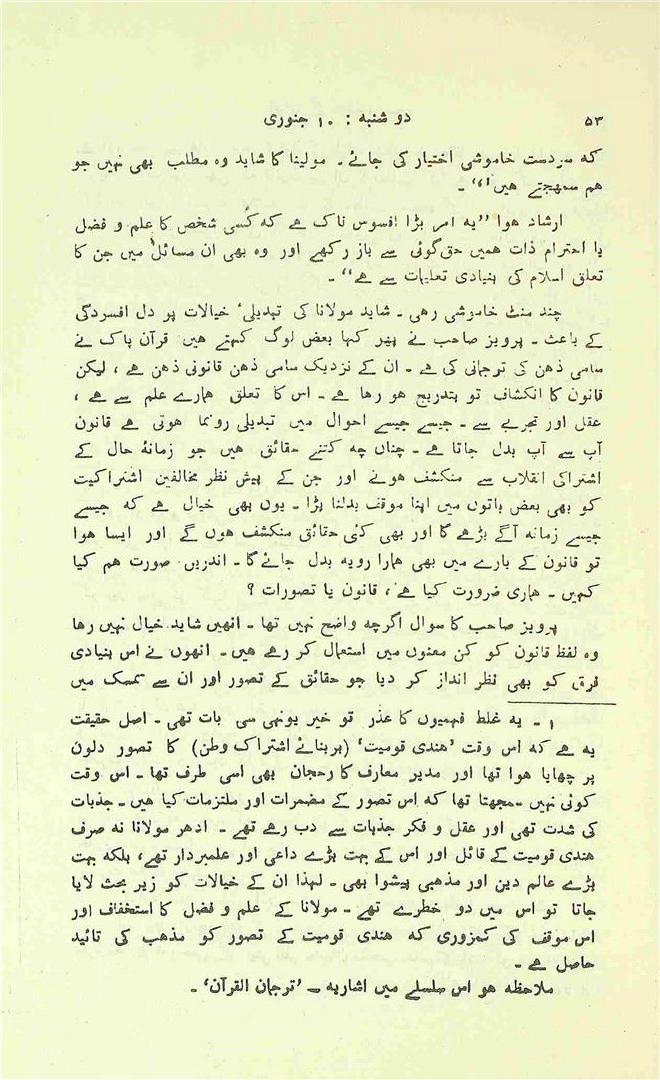 ۵۳ دو شنبہ : ۱۰ جنوری
کہ سردست خاموشی اختیار کی جائے ۔ مولینا کا شاید وہ مطلب بھی نہیں جو
ہم سمجھتے ہیں۱“ ۔
ارشاد ہوا ”یہ امر بڑا افسوس ناک ہے کہ کسی شخص کا علم و فضل
یا احترام ذات ہمیں حق گوئی سے باز رکھے اور وہ بھی ان مسائل میں جن کا
تعلق اسلام کی بنیادی تعلیمات سے ہے“ ۔
چند منٹ خاموشی رہی ۔ شاید مولانا کی تبدیلیٴ خیالات پر دل افسردگی
کے باعث ۔ پرویز صاحب نے پھر کہا بعض لوگ کہتے ہیں قرآن پاک نے
سامی ذہن کی ترجمانی کی ہے ۔ ان کے نزدیک سامی ذہن قانونی ذہن ہے ، لیکن
قانون کا انکشاف تو بتدریج ہو رہا ہے ۔ اس کا تعلق ہمارے علم سے ہے ،
عقل اور تجربے سے ۔ جیسے جیسے احوال میں تبدیلی رونما ہوتی ہے قانون
آپ سے آپ بدل جاتا ہے ۔ چناں چہ کتنے حقائق ہیں جو زمانۂ حال کے
اشتراکی انقلاب سے منکشف ہوئے اور جن کے پیش نظر مخالفین اشتراکیت
کو بھی بعض باتوں میں اپنا موقف بدلنا پڑا ۔ یوں بھی خیال ہے کہ جیسے
جیسے زمانہ آگے بڑھے گا اور بھی کئی حقائق منکشف ہوں گے اور ایسا ہوا
تو قانون کے بارے میں بھی ہمارا رویہ بدل جائے گا ۔ اندریں صورت ہم کیا
کہیں ۔ ہماری ضرورت کیا ہے ، قانون یا تصورات ؟
پرویز صاحب کا سوال اگرچہ واضح نہیں تھا ۔ انھیں شاید خیال نہیں رہا
وہ لفظ قانون کو کن معنوں میں استعمال کر رہے ہیں ۔ انھوں نے اس بنیادی
فرق کو بھی نظر انداز کر دیا جو حقائق کے تصور اور ان سے تمسک میں
۱ ۔ یہ غلط فہمیوں کا عذر تو خیر یونہی سی بات تھی ۔ اصل حقیقت
یہ ہے کہ اس وقت ’ہندی قومیت‘ (بربنائے اشتراک وطن) کا تصور دلوں
پر چھایا ہوا تھا اور مدیر معارف کا رحجان بھی اسی طرف تھا ۔ اس وقت
کوئی نہیں سمجھتا تھا کہ اس تصور کے مضمرات اور ملتزمات کیا ہیں ۔ جذبات
کی شدت تھی اور عقل و فکر جذبات سے دب رہے تھے ۔ ادھر مولانا نہ صرف
ہندی قومیت کے قائل اور اس کے بہت بڑے داعی اور علمبردار تھے ، بلکہ بہت
بڑے عالم دین اور مذہبی پیشوا بھی ۔ لہذا ان کے خیالات کو زیر بحث لایا
جاتا تو اس میں دو خطرے تھے ۔ مولانا کے علم و فضل کا استخفاف اور
اس موقف کی کمزوری کہ ہندی قومیت کے تصور کو مذہب کی تائید
حاصل ہے ۔
ملاحظہ ہو اس سلسلے میں اشاریہ ۔ ’ترجمان القرآن‘ ۔